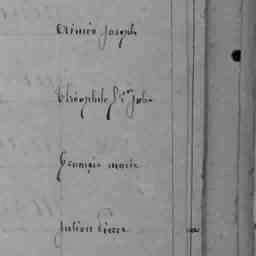 Aimée Joseph
Théophile St Jobe
François marie
Julien Pierre